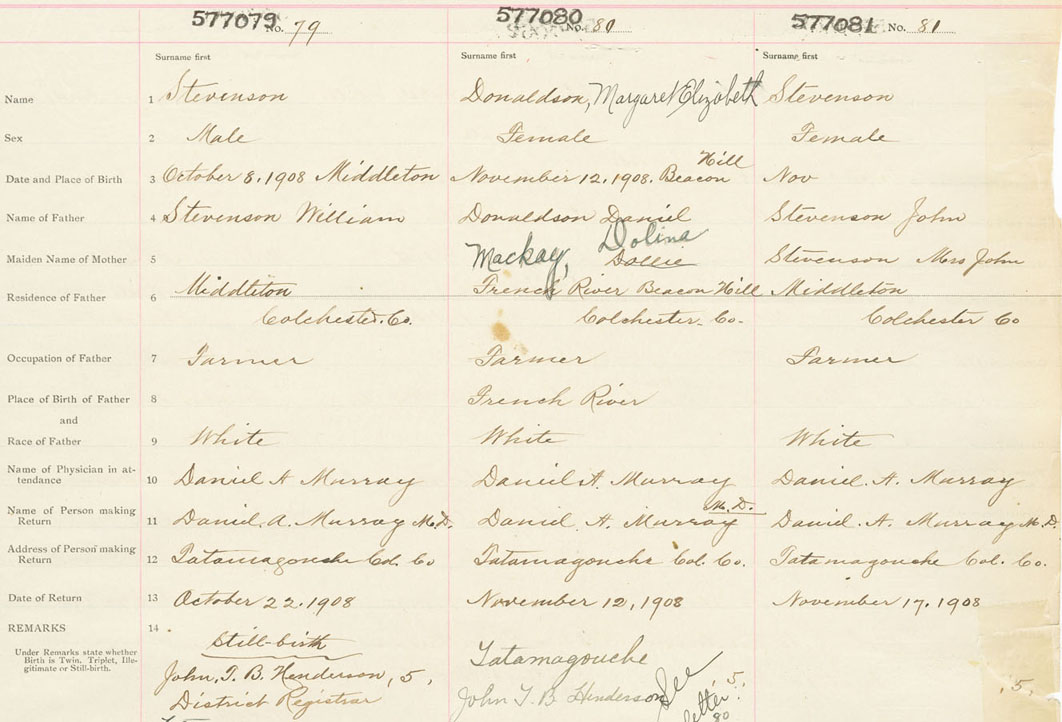 577079 No. 79 577080 No. 80 577081 No. 81
Surname first Surname first Surname first
Name 1 Stevenson Donaldson, Margaret Elizabeth Stevenson
Sex 2 Male Female Female
Hill
Date and Place of Birth 3 October 8, 1908 Middleton November 12, 1908. Beacon Nov
Name of Father 4 Stevenson William Donaldson Daniel Stevenson John
Dolina
Maiden Name of Mother 5 Mackay, Dollie Stevenson Mrs John
Residence of Father 6 Middleton French River Beacon Hill Middleton
Colchester Co. Colchester Co. Colchester Co
Occupation of Father 7 Farmer Farmer Farmer
Place of Birth of Father 8 French River
and
Race of Father 9 White White White
Name of Physician in at-
tendance 10 Daniel A Murray Daniel A. Murray Daniel. A. Murray
M. D.
Name of Person making
Return 11 Daniel. A. Murray M. D. Daniel A. Murray Daniel. A. Murray M. D.
Address of Person making
Return 12 Tatamagouche Col. Co Tatamagouche Col. Co. Tatamagouche Col. Co.
Date of Return 13 October 22, 1908 November 12, 1908 November 17, 1908
REMARKS 14
Under Remarks state whether
Birth is Twin, Triplet, Ille-
gitimate or Still-birth.
Still-birth
John, T. B. Henderson, 5,
District Registrar
Tatamagouche
John T. B Henderson
See 5.
letter
80
5,